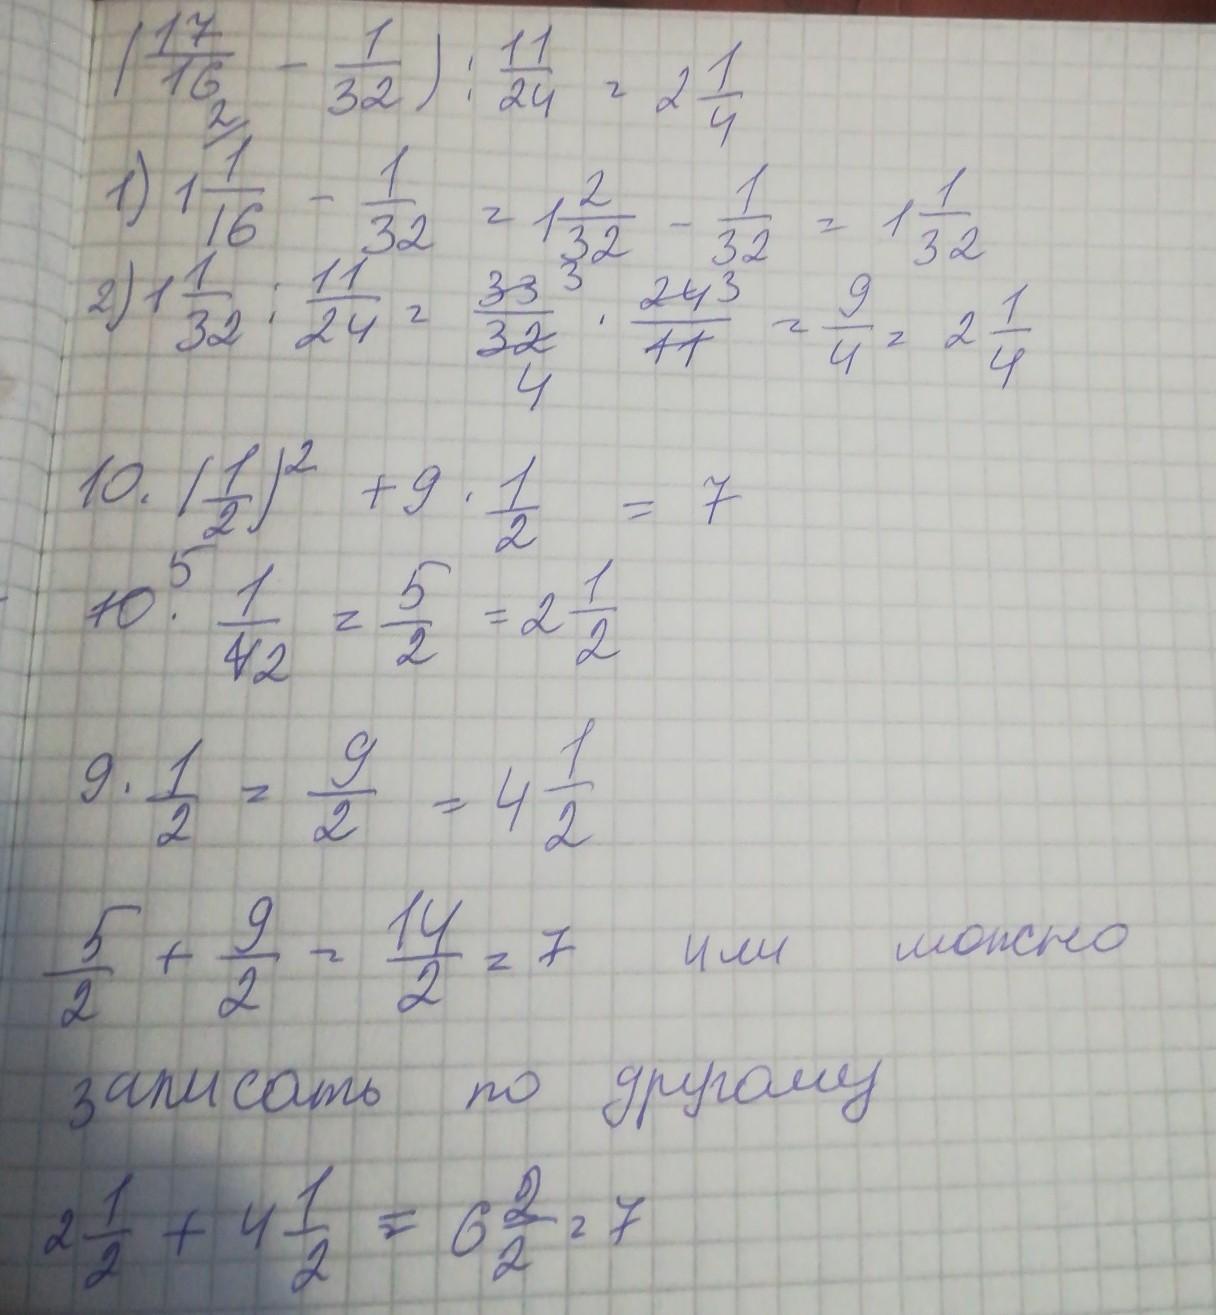 (17/16 - 1/32) : 11/24 = 2 1/4
1) 1 1/16 - 1/32 = 1 2/32 - 1/32 = 1 1/32
2) 1 1/32 : 11/24 = 33 3/32 4 · 24 3/11 = 9/4 = 2 1/4
10 · (1/2)² + 9 · 1/2 = 7
10 5 · 1/4 2 = 5/2 = 2 1/2
9 · 1/2 = 9/2 = 4 1/2
5/2 + 9/2 = 14/2 = 7 или можно
записать по другому
2 1/2 + 4 1/2 = 6 2/2 = 7